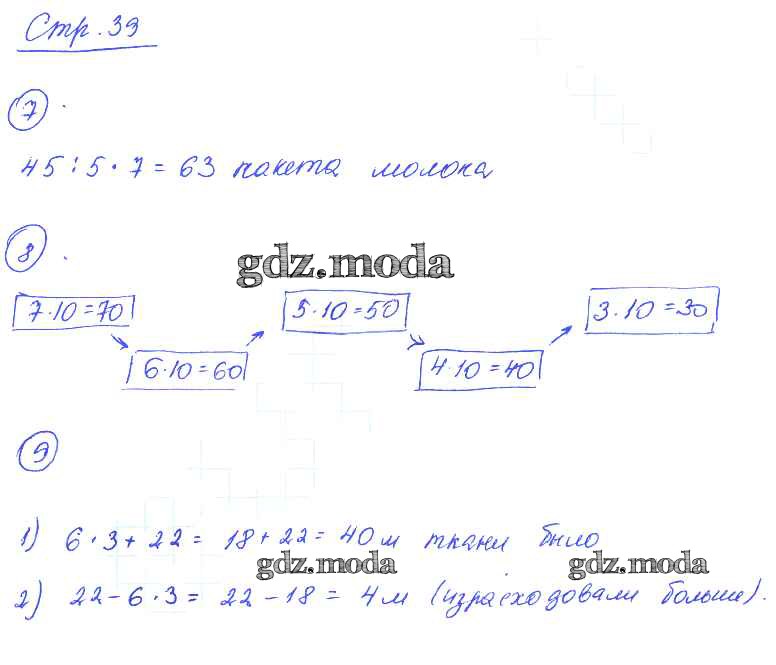 Стр. 39
7.
45 : 5 · 7 = 63 пакета молока
8.
gdz.moda
7·10=70
5·10=50
3·10=30
6·10=60
4·10=40
9
1) 6·3+22= 18+22=40м ткани было
gdz.moda
gdz.moda
2) 22-6·3= 22-18= 4м (израсходовали больше).